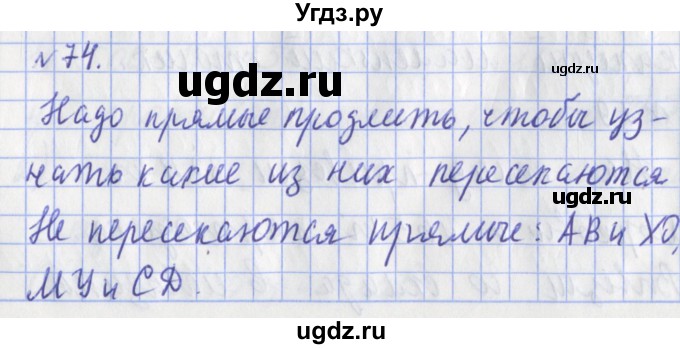 Угдз.ру
№74.
ugdz.ru
Надо прямые продлить, чтобы уз-
ugdz.ru
нать какие из них пересекаются
Не пересекаются прямые: АВ и ХО,
ugdz.ru
МУ и СД.
ugdz.ru